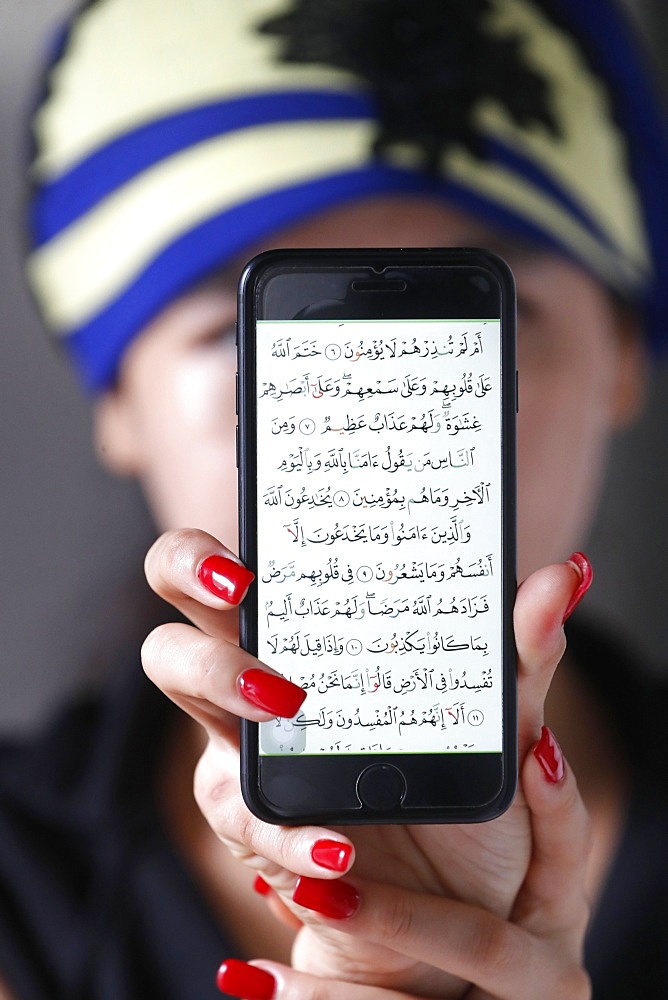 أَمْ لَمْ تُنذِرْهُمْ لَا يُؤْمِنُونَ ٦ خَتَمَ ٱللَّهُ
عَلَىٰ قُلُوبِهِمْ وَعَلَىٰ سَمْعِهِمْ ۖ وَعَلَىٰٓ أَبْصَـٰرِهِمْ
غِشَـٰوَةٌ ۖ وَلَهُمْ عَذَابٌ عَظِيمٌ ٧ وَمِنَ
ٱلنَّاسِ مَن يَقُولُ ءَامَنَّا بِٱللَّهِ وَبِٱلْيَوْمِ
ٱلْـَٔاخِرِ وَمَا هُم بِمُؤْمِنِينَ ٨ يُخَـٰدِعُونَ ٱللَّهَ
وَٱلَّذِينَ ءَامَنُوا۟ وَمَا يَخْدَعُونَ إِلَّآ
أَنفُسَهُمْ وَمَا يَشْعُرُونَ ٩ فِى قُلُوبِهِم مَّرَضٌ
فَزَادَهُمُ ٱللَّهُ مَرَضًا ۖ وَلَهُمْ عَذَابٌ أَلِيمٌۢ
بِمَا كَانُوا۟ يَكْذِبُونَ ١٠ وَإِذَا قِيلَ لَهُمْ لَا
تُفْسِدُوا۟ فِى ٱلْأَرْضِ قَالُوٓا۟ إِنَّمَا نَحْنُ
١١ أَلَآ إِنَّهُمْ هُمُ ٱلْمُفْسِدُونَ وَلَـٰكِن